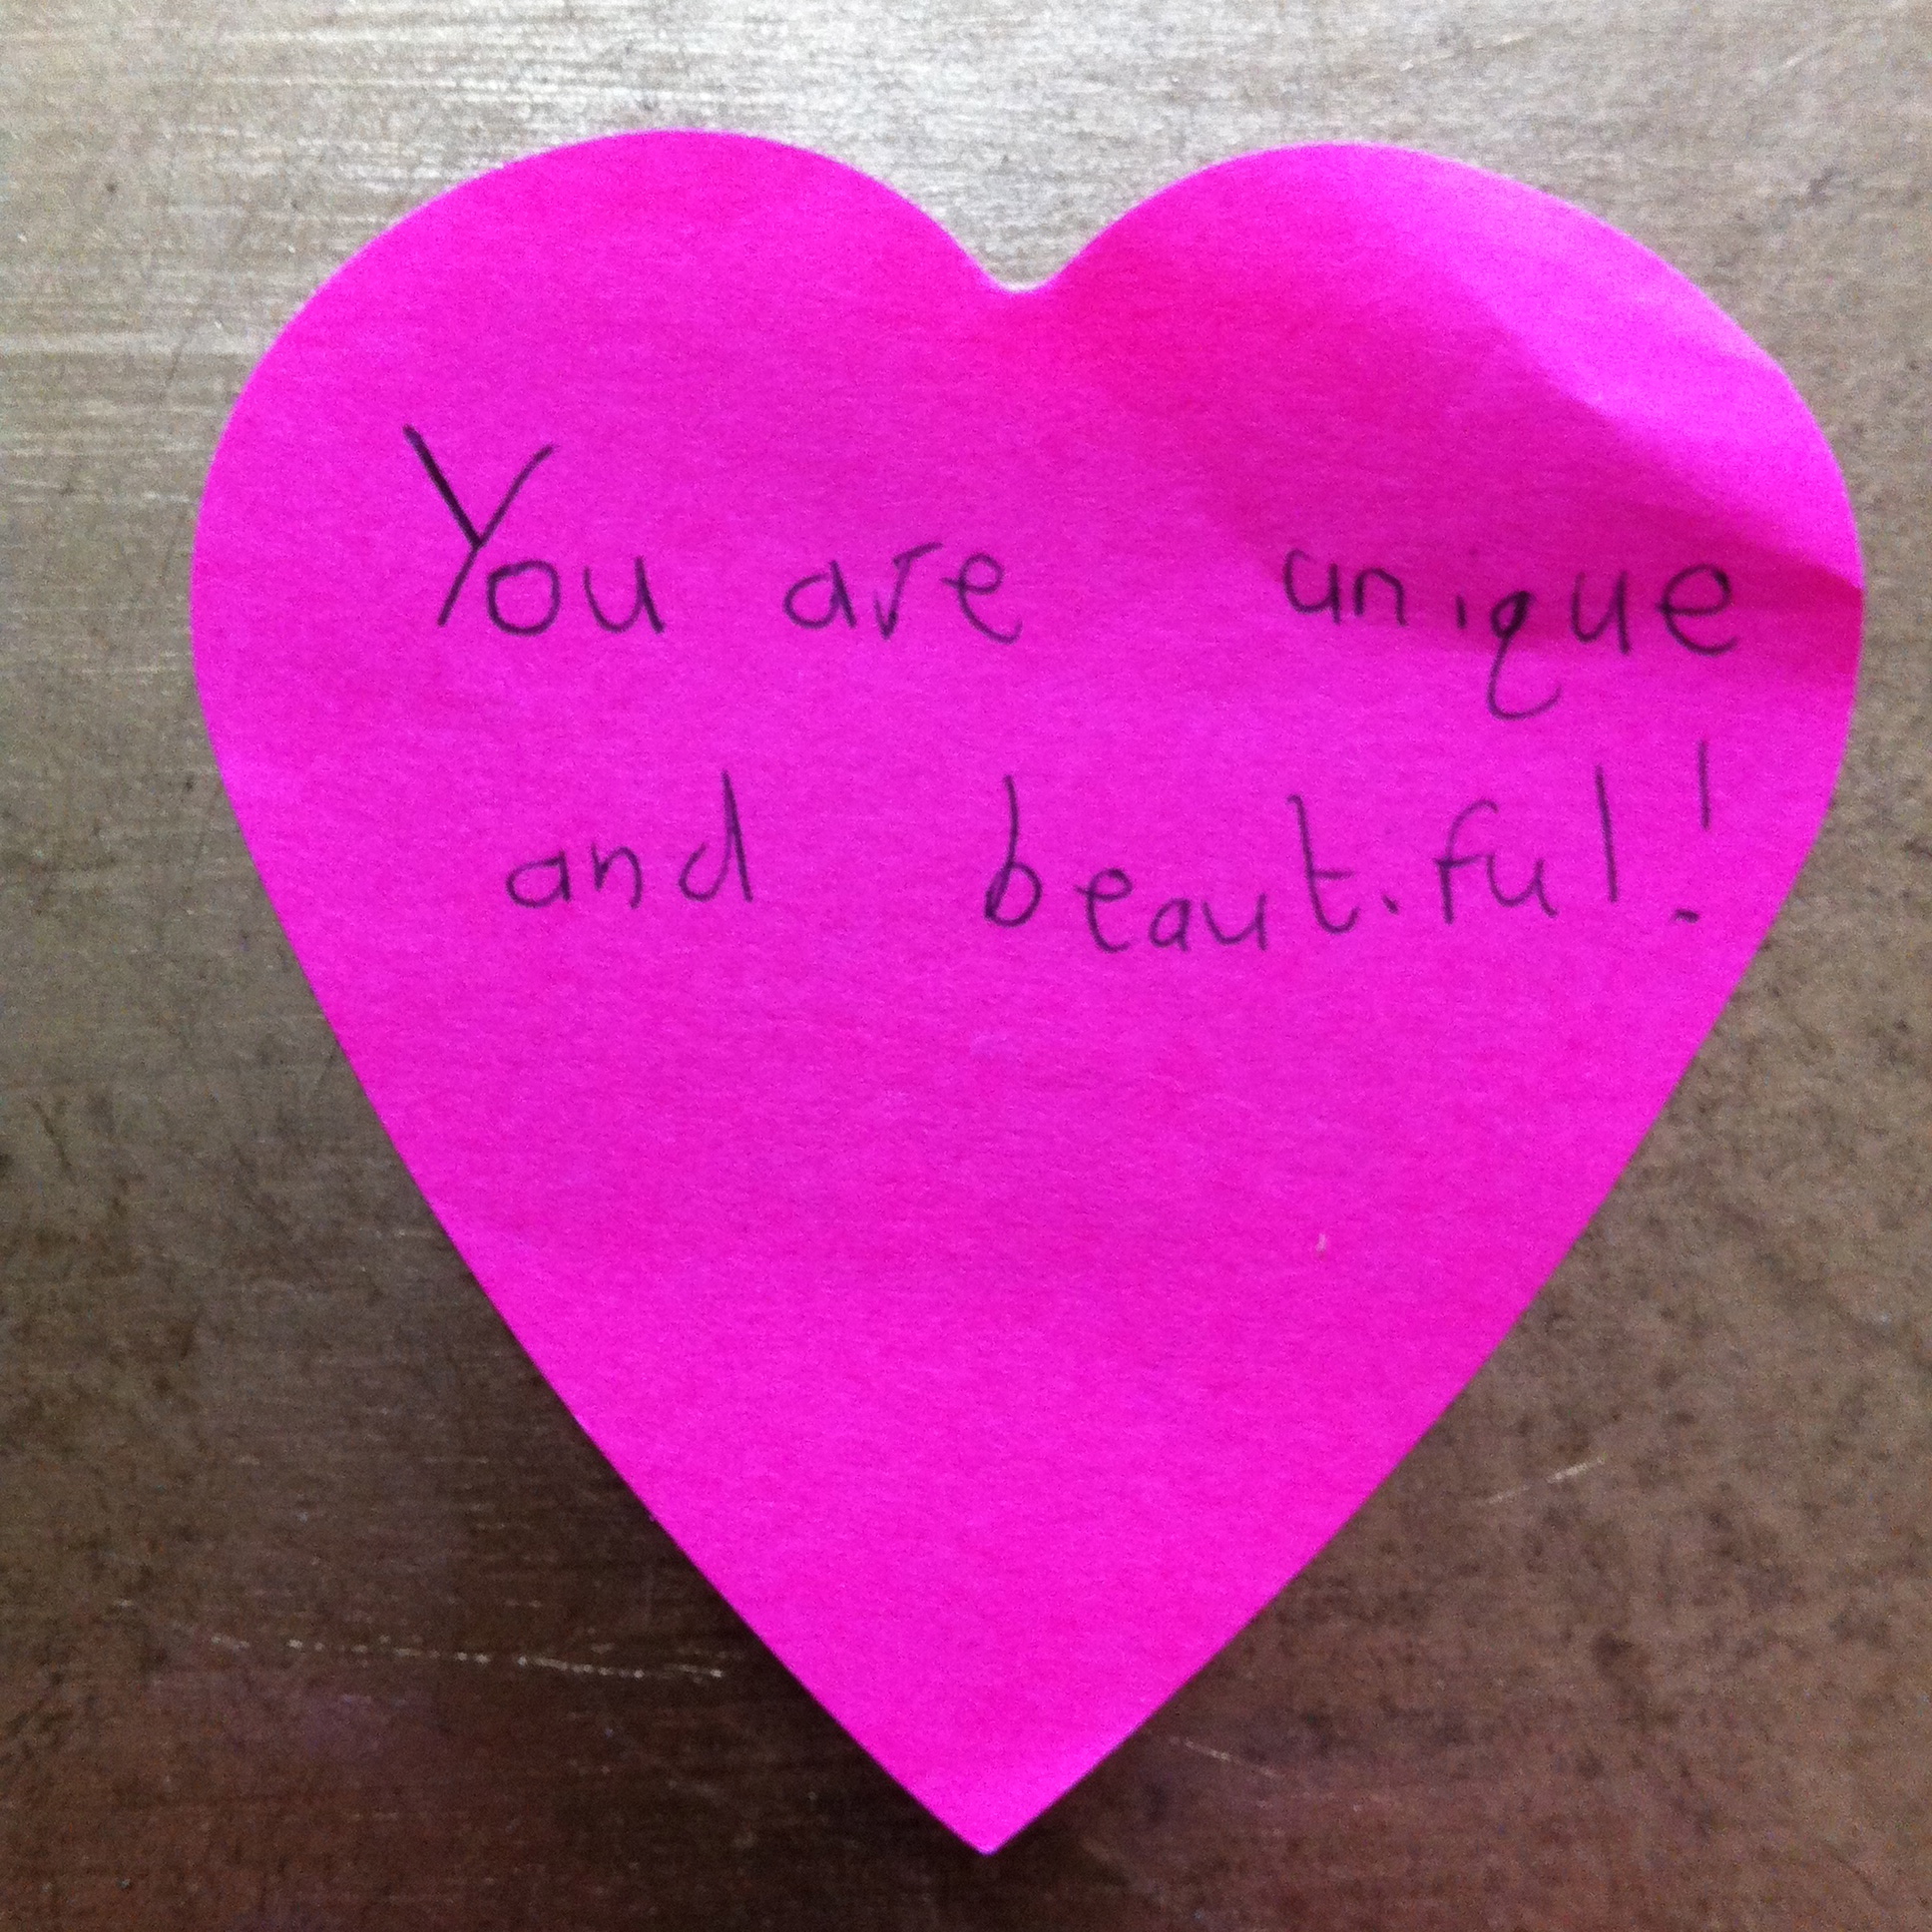 You are unique
and beautiful!